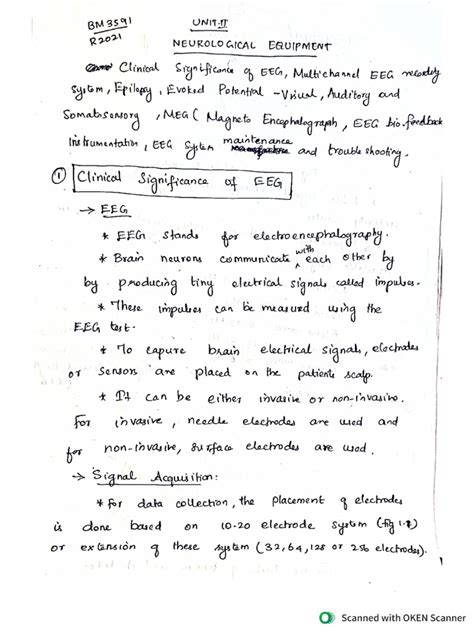 BM3591
R2021
UNIT-II
NEUROLOGICAL EQUIPMENT
Clinical Significance of EEG, Multichannel EEG recording
System, Epilepsy, Evoked Potential - Visual, Auditory and
Somatosensory, MEG (Magneto Encephalograph), EEG bio-feedback
Instrumentation, EEG System maintenance and trouble shooting.
① Clinical Significance of EEG
→ EEG
* EEG stands for electroencephalography.
* Brain neurons communicate with each other by
by producing tiny electrical signals called impulses.
* These impulses can be measured using the
EEG test.
* To capure brain electrical signals, electrodes
or sensors are placed on the patients scalp.
* It can be either invasive or non-invasive.
For invasive, needle electrodes are used and
for non-invasive, surface electrodes are used.
→ Signal Acquisition:
* For data collection, the placement of electrodes
is done based on 10-20 electrode system (fig 1.8)
or extension of these system (32,64,128 or 256 electrodes).
Scanned with OKEN Scanner